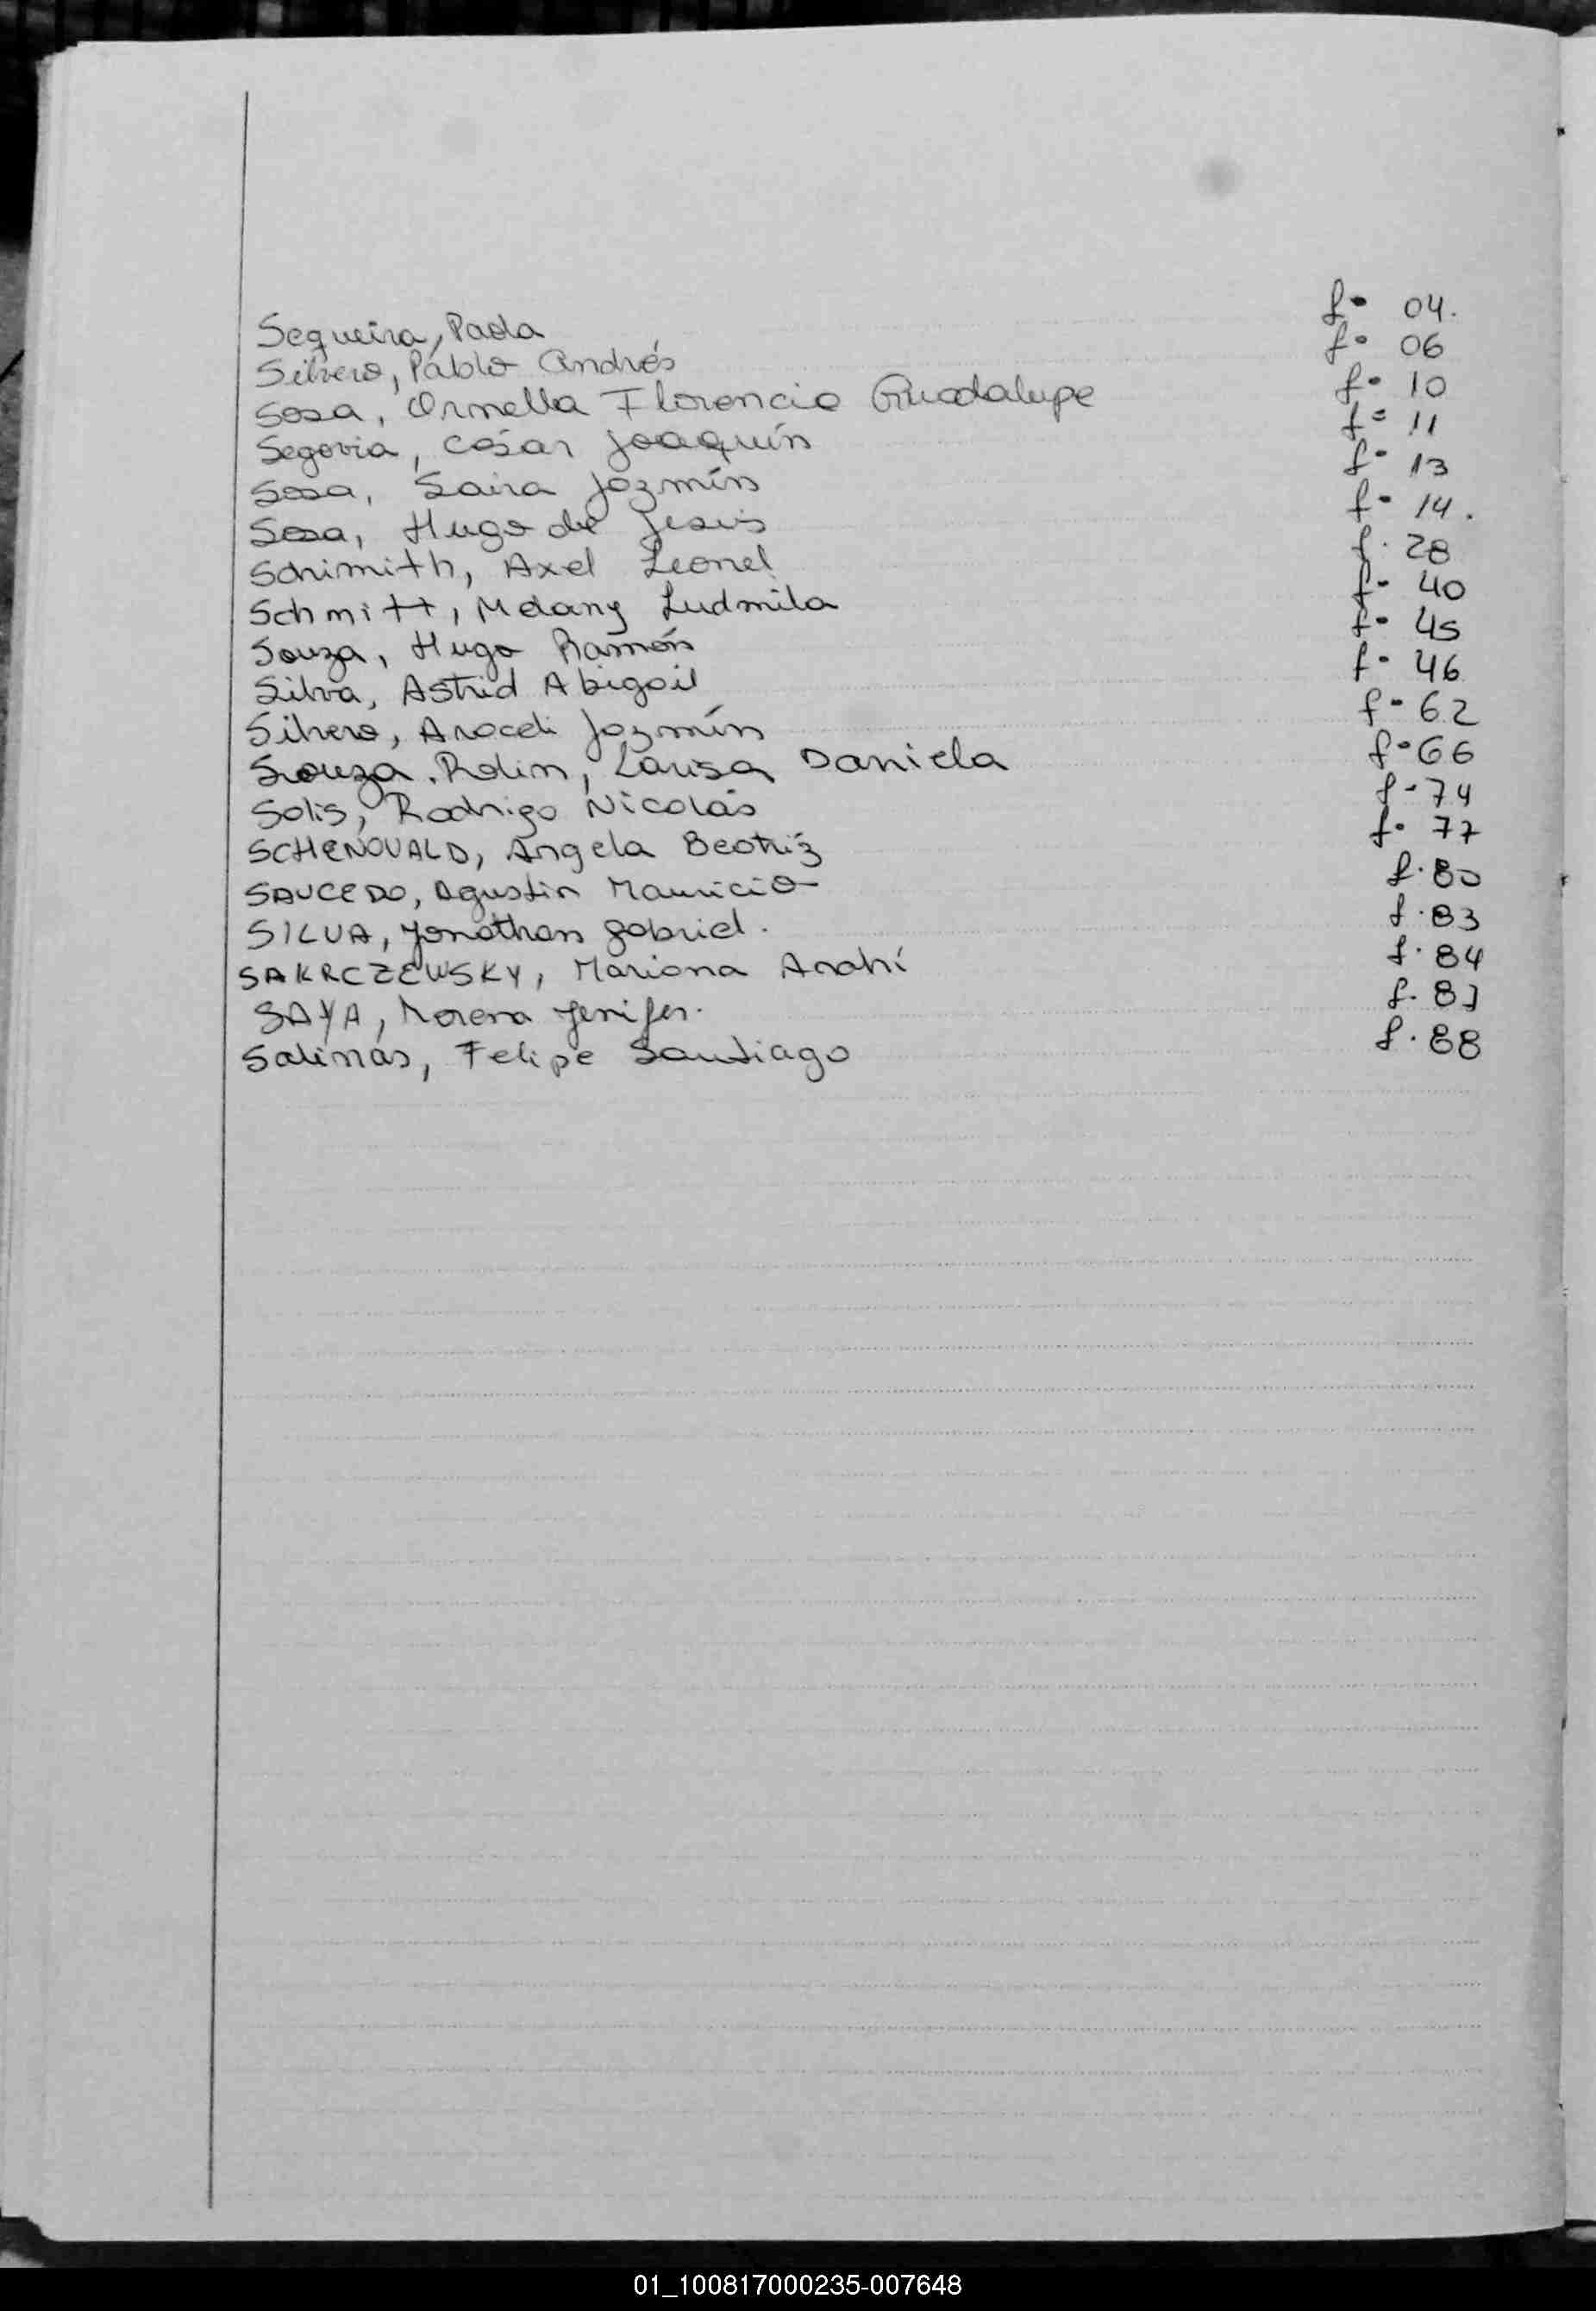 Sequeira, Paola f° 04.
Silvero, Pablo Andrés f° 06
Sosa, Ornella Florencia Guadalupe f° 10
Segovia, César Joaquín f° 11
Sosa, Saira Jazmín f° 13
Sosa, Hugo de Jesús f° 14.
Schimith, Axel Leonel f. 28
Schmitt, Melany Ludmila f° 40
Souza, Hugo Ramón f° 45
Silva, Astrid Abigail f° 46
Silvero, Araceli Jazmín f° 62
Souza Rolin, Larisa Daniela f° 66
Solis, Rodrigo Nicolás f° 74
SCHENOVALD, Angela Beatriz f° 77
SAUCEDO, Agustin Mauricio f. 80
SILVA, Jonathan Gabriel. f. 83
SAKRCZEWSKY, Mariana Anahí f. 84
SAYA, Morena Jenifer. f. 87
Salinas, Felipe Santiago f. 88
01_100817000235-007648